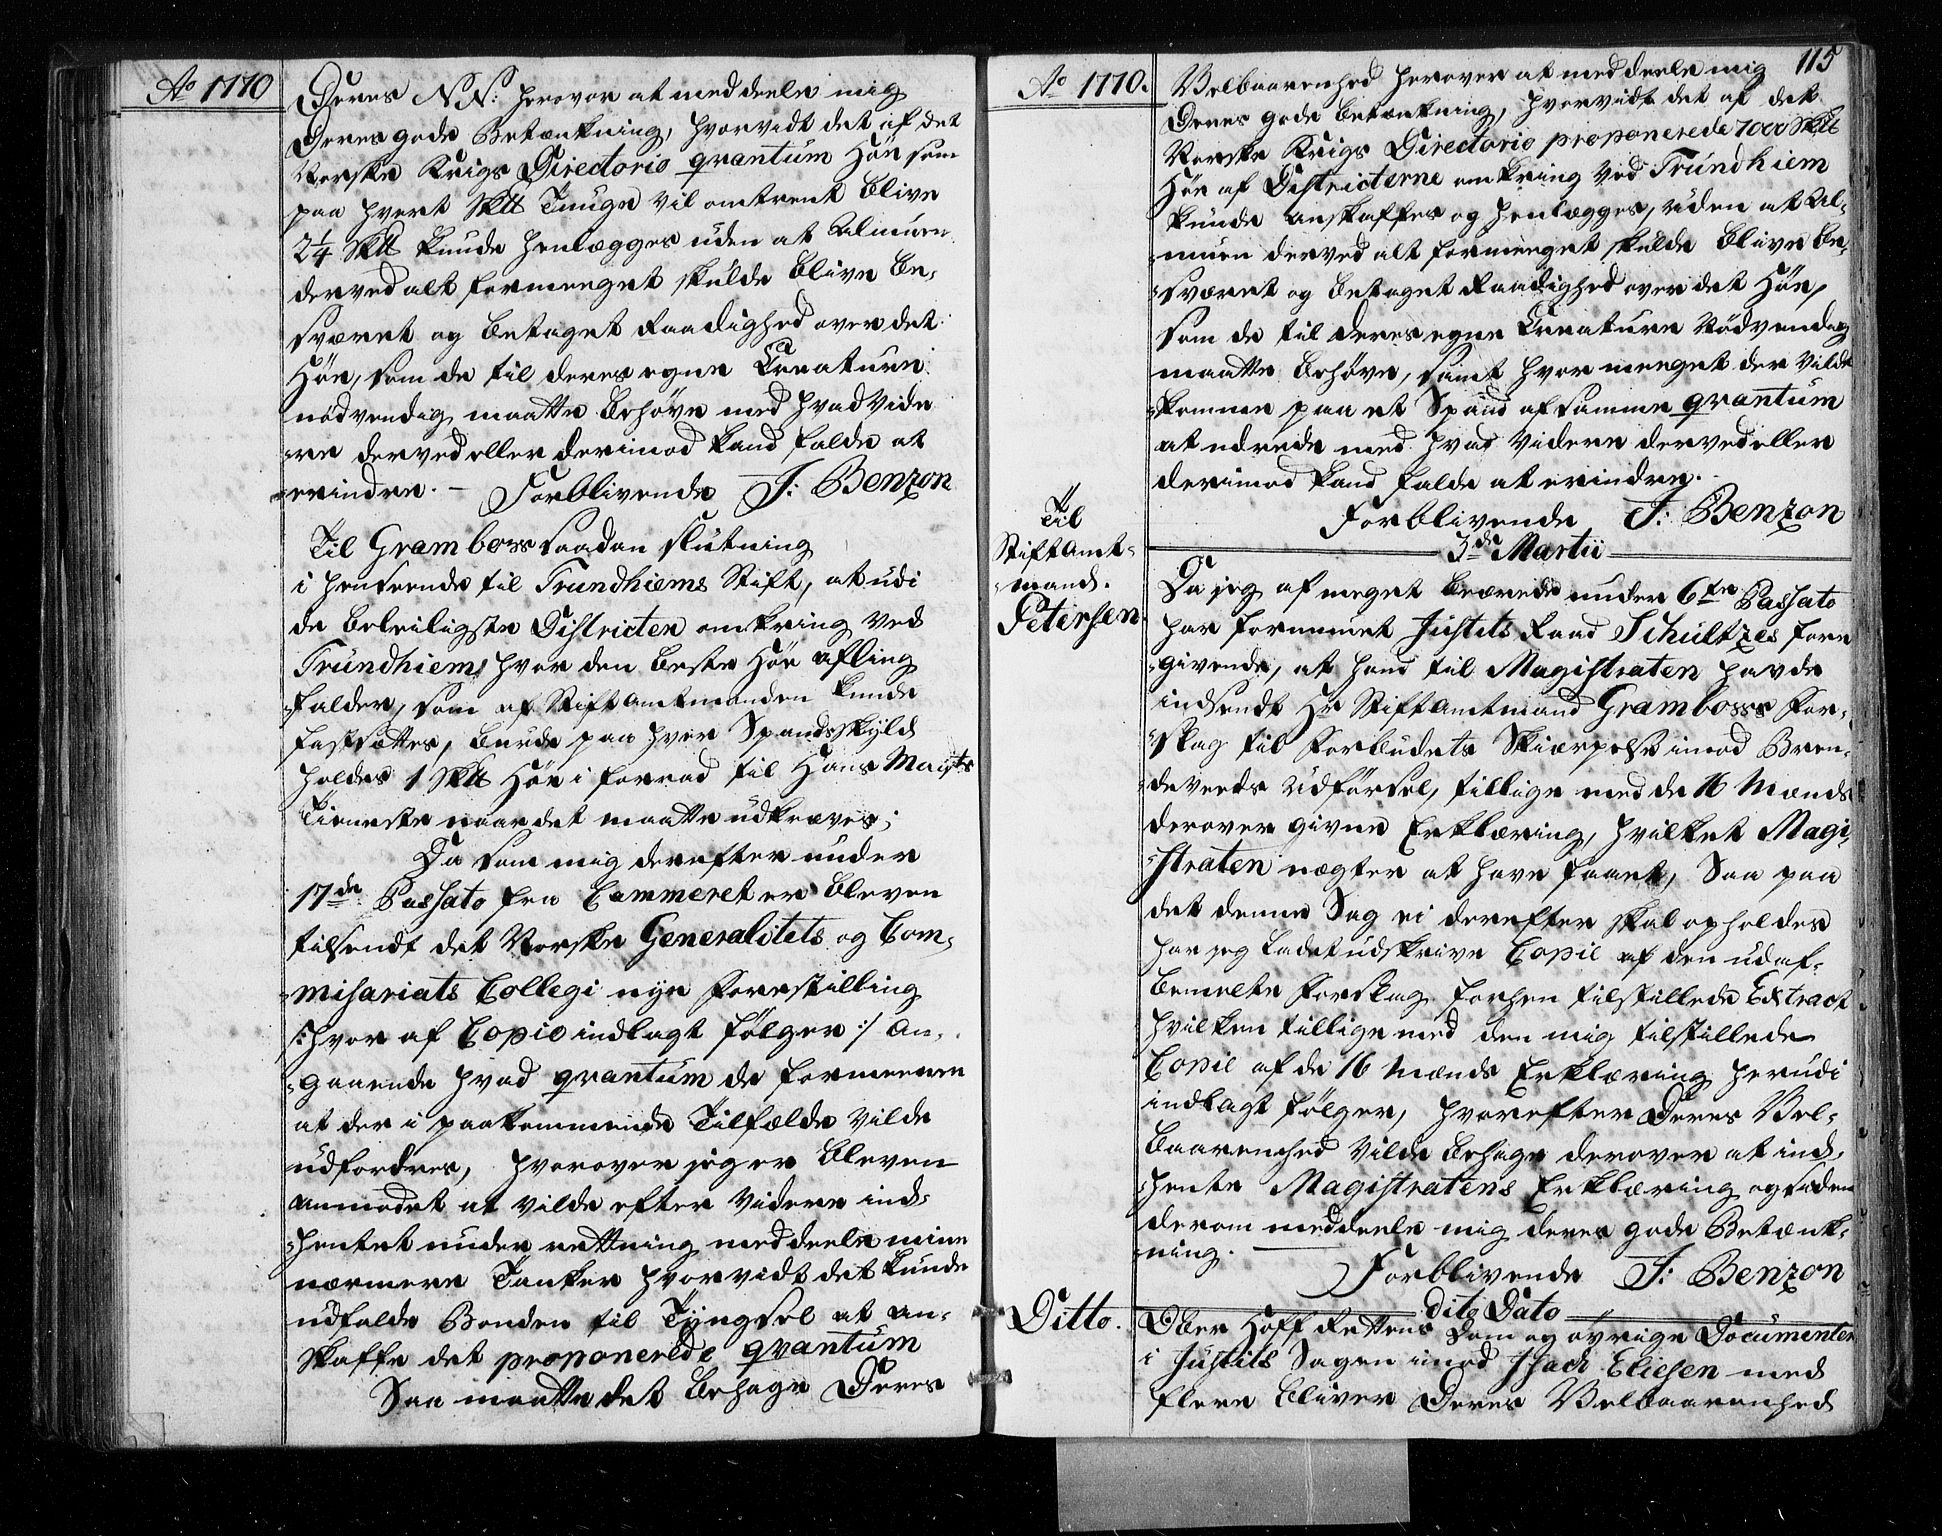 Ao 1770
Deres NN: herover at meddeele mig
Deres gode Betænkning, hvorvidt det af det
Norske Krigs Directorio qvantum Höe som
paa hvert Sk℔ Tunge vil omtrent blive
2¼ Sk℔ kunde henlægges uden at Almuen
derved alt formeeget skulde blive be-
sværet og betaget Raadighed over det
Höe, som de til deres egne Creature
nödvendig maatte behöve med hvad vide
re derved eller derimod kand falde at
erindre. – Forblivende J: Benzon
Til Gramboss saadan slutning
i henseende til Trundhiems Stift, at udi
de beleiligste Districter omkring ved
Trundhiem, hvor den beste Höe afling
falder, som af Stiftamtmanden kunde
fastsættes, burde paa hver Spandsskyld
holdes 1 Sk℔ Höe i forrad til Hans Maysts
Tieneste naar det maatte udkræves;
Da som mig derefter under
17de Passato fra Cammeret er bleven
tilsendt det Norske Generalitets og Com-
misariats Collegi nye Forestilling
/: hvor af Copie indlagt fölger :/ an-
gaaende hvad qvantum de formeener
at der i paakommende Tilfælde vilde
udfordres, hvorover jeg er bleven
anmodet at vilde efter videre ind-
hentet underrettning meddeele mine
nærmere Tanker hvorvidt det kunde
udfalde Bonden til Tyngsel at an-
skaffe det proponerede qvantum
Saa maatte det behage Deres
Ao 1770.
115
Velbaarenhed herover at meddeele mig
Deres gode betænkning, hvorvidt det af det
Norske Krigs Directorio proponerede 7000 Sk℔
Höe af Districterne omkring ved Trundhiem
kunde anskaffes og henlægges, uden at Al-
muen derved alt formeeget skulde blive be-
sværet og betaget Raadighed over det Höe,
som de til deres egne Creature Nödvendig
maatte behöve, samt hvor meeget der vilde
komme paa et Spand af samme qvantum
at udrede med hvad videre derved eller
derimod kand falde at erindre.
Forblivende J: Benzon
3de Martii
Til
Stiftamt-
mand.
Petersen
Da jeg af meget beærede under 6te Passato
har fornemmet Justits Raad Schultzes fore
givende, at hand til Magistraten havde
indsendt Hr Stiftamtmand Gramboss For-
slag til Forbudets Skiærpelse imod Bren-
deveets Udförsel, tillige med de 16 Mænds
derover givne Erklæring, hvilket Magi-
straten nægter at have faaet, Saa paa
det denne Sag ei derefter skal opholdes
har jeg ladet udskrive Copie af den udaf-
bemelte Forslag forhen tilstillede Extract
hvilken tillige med den mig tilstillede
Copie af de 16 Mænds Erklæring herudi
indlagt fölger, hvorefter Deres Vel-
baarenhed vilde behage derover at ind-
hente Magistratens Erklæring og siden
derom meddeele mig deres gode Betænk-
ning.
Forblivende J: Benzon
dito Dato
Ditto.
Ober Hoff Rettens Dom og övrige Documenter
i Justits Sagen imod Isach Eliesen med
flere bliver Deres Velbaarenhed